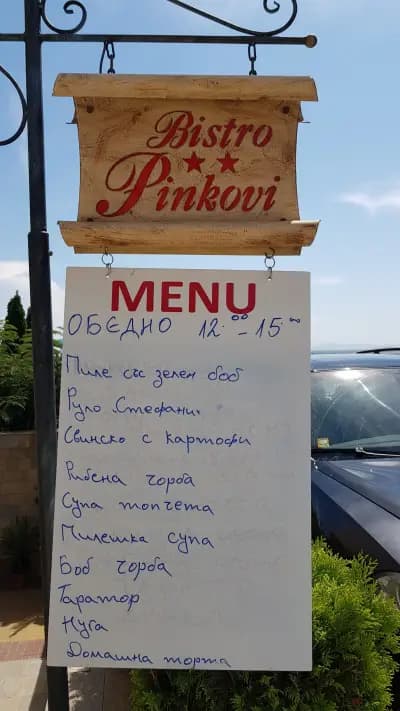 Bistro
Pinkovi
MENU
ОБЕДНО 12:00 - 15:00
Пиле със зелен боб
Руло "Стефани"
Свинско с картофи
Рибена чорба
Супа топчета
Пилешка супа
Боб чорба
Таратор
Нуга
Домашна торта